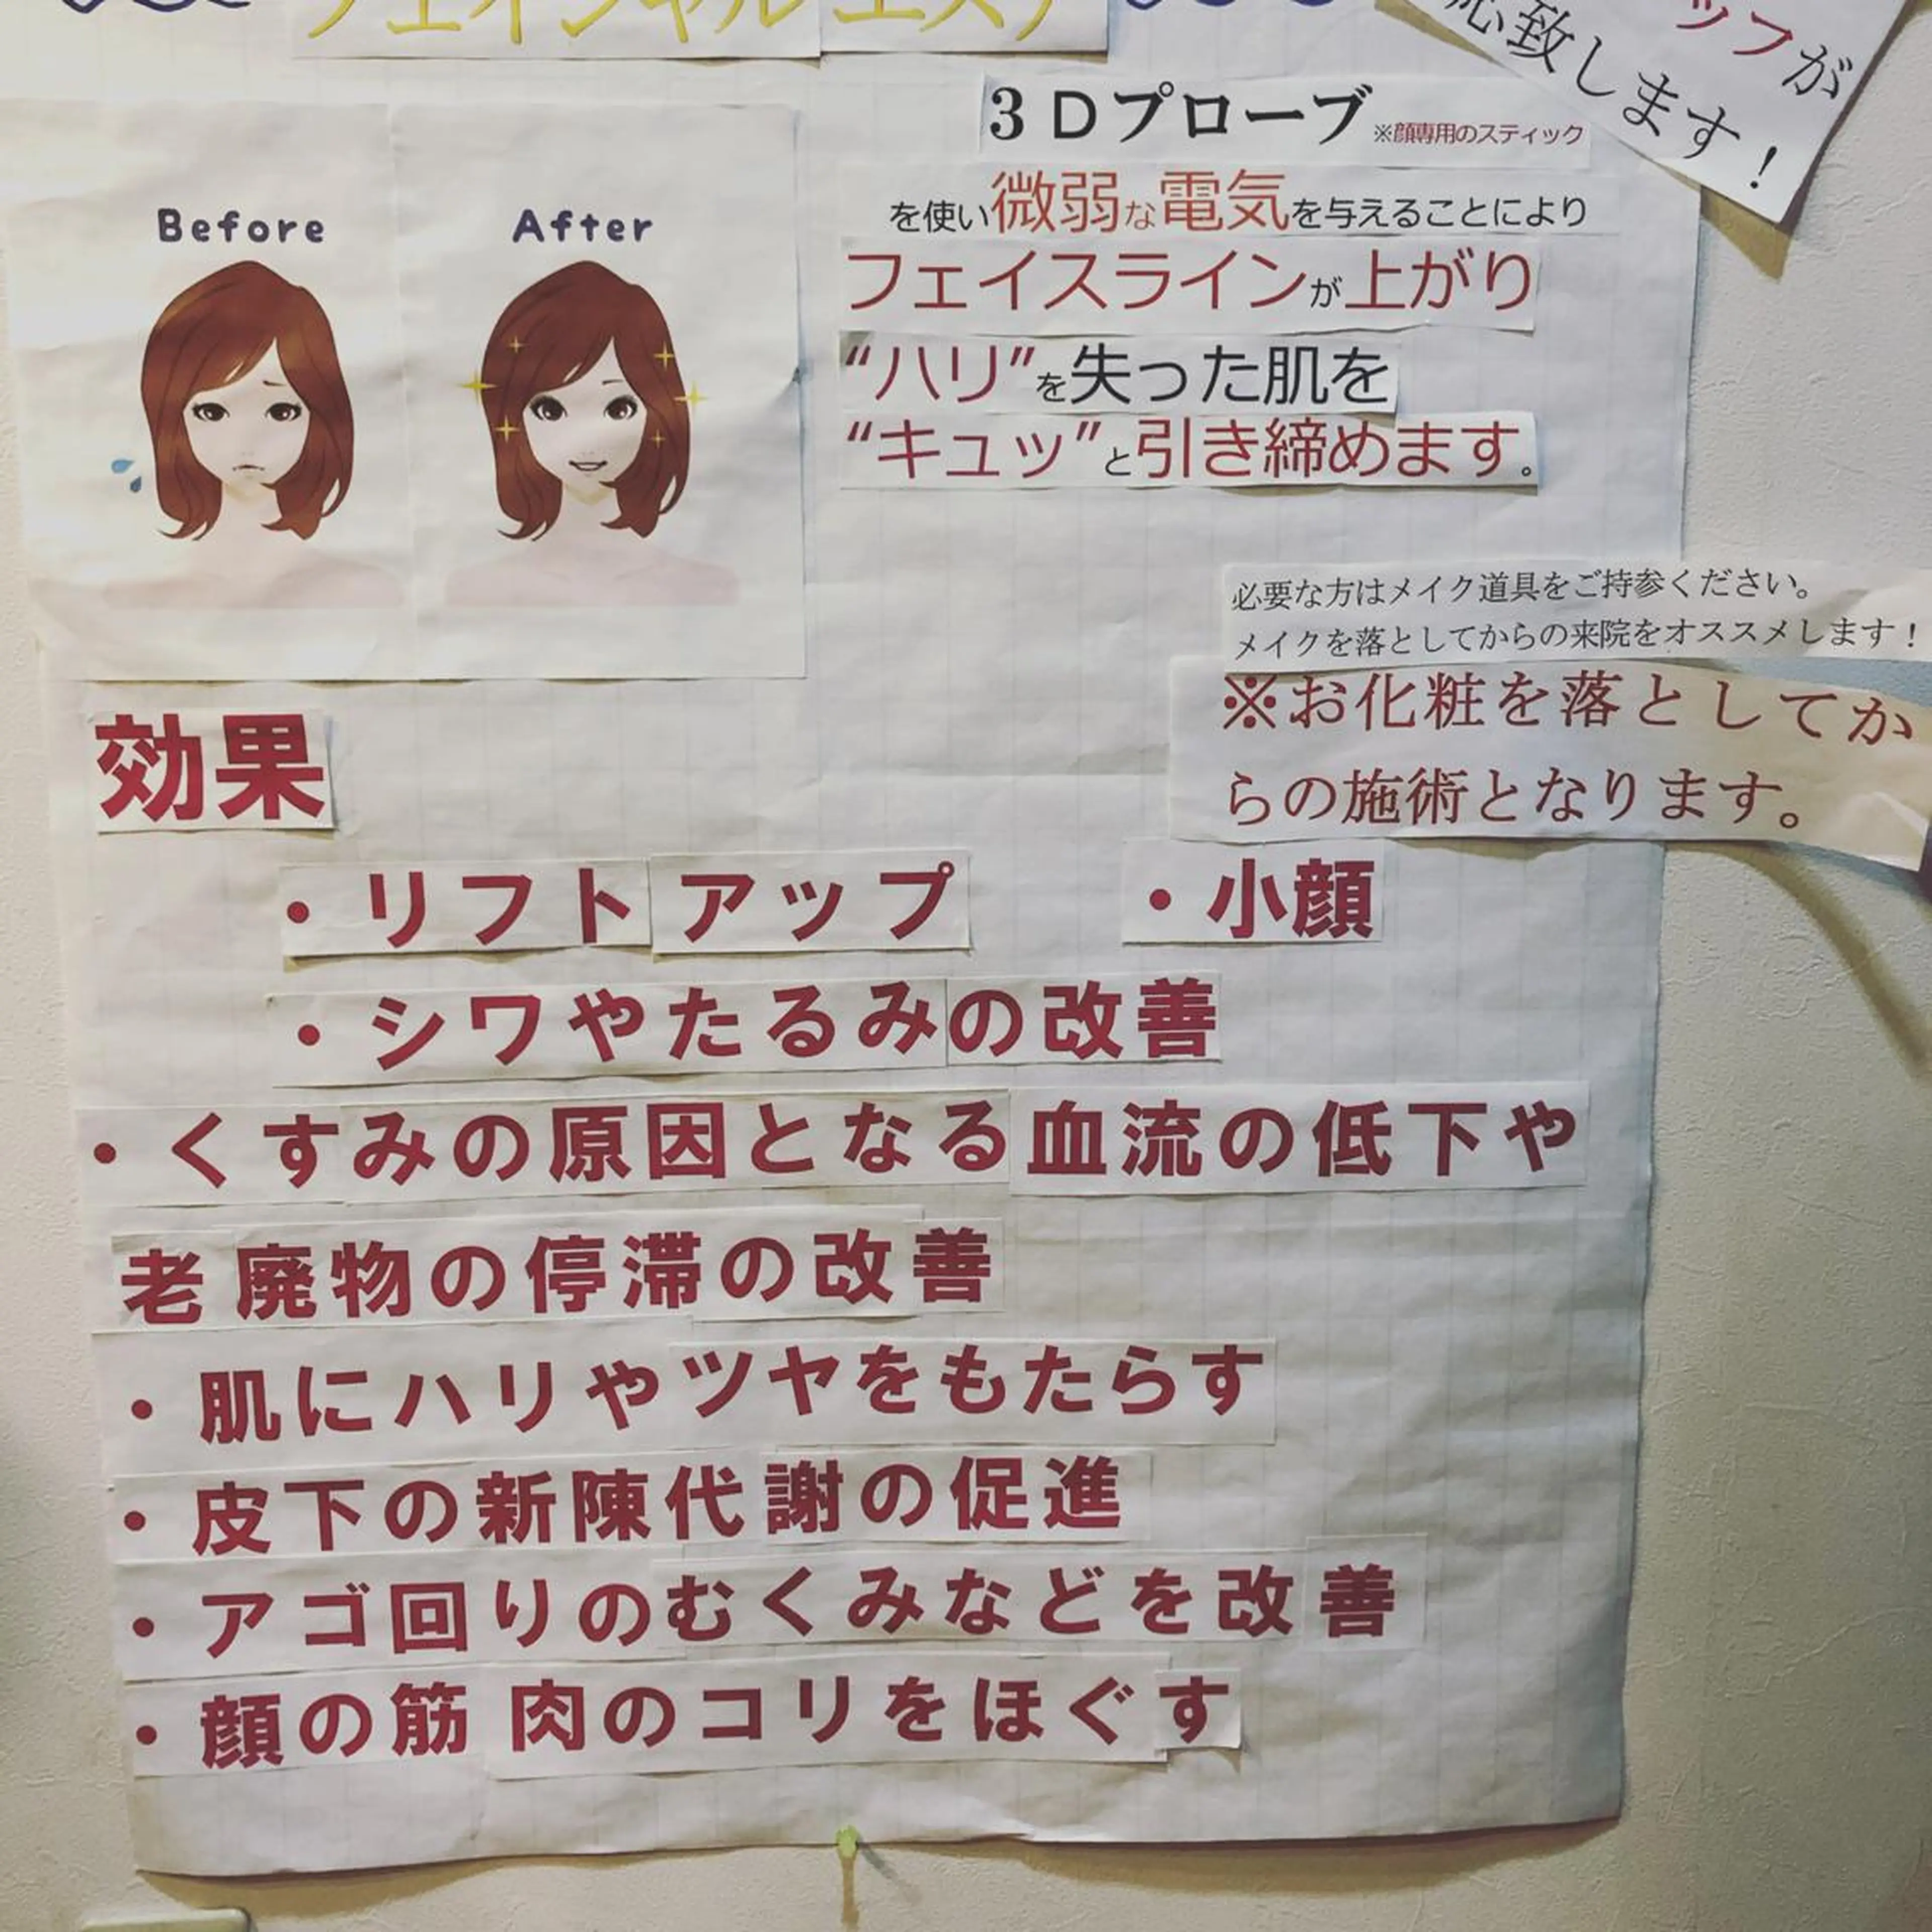 フェイシャルエステ
ップが
応致します！
3Dプローブ※顔専用のスティック
を使い微弱な電気を与えることにより
フェイスラインが上がり
“ハリ”を失った肌を
“キュッ”と引き締めます。
Before
After
必要な方はメイク道具をご持参ください。
メイクを落としてからの来院をオススメします！
※お化粧を落としてか
らの施術となります。
効果
・リフトアップ ・小顔
・シワやたるみの改善
・くすみの原因となる血流の低下や
老廃物の停滞の改善
・肌にハリやツヤをもたらす
・皮下の新陳代謝の促進
・アゴ回りのむくみなどを改善
・顔の筋肉のコリをほぐす